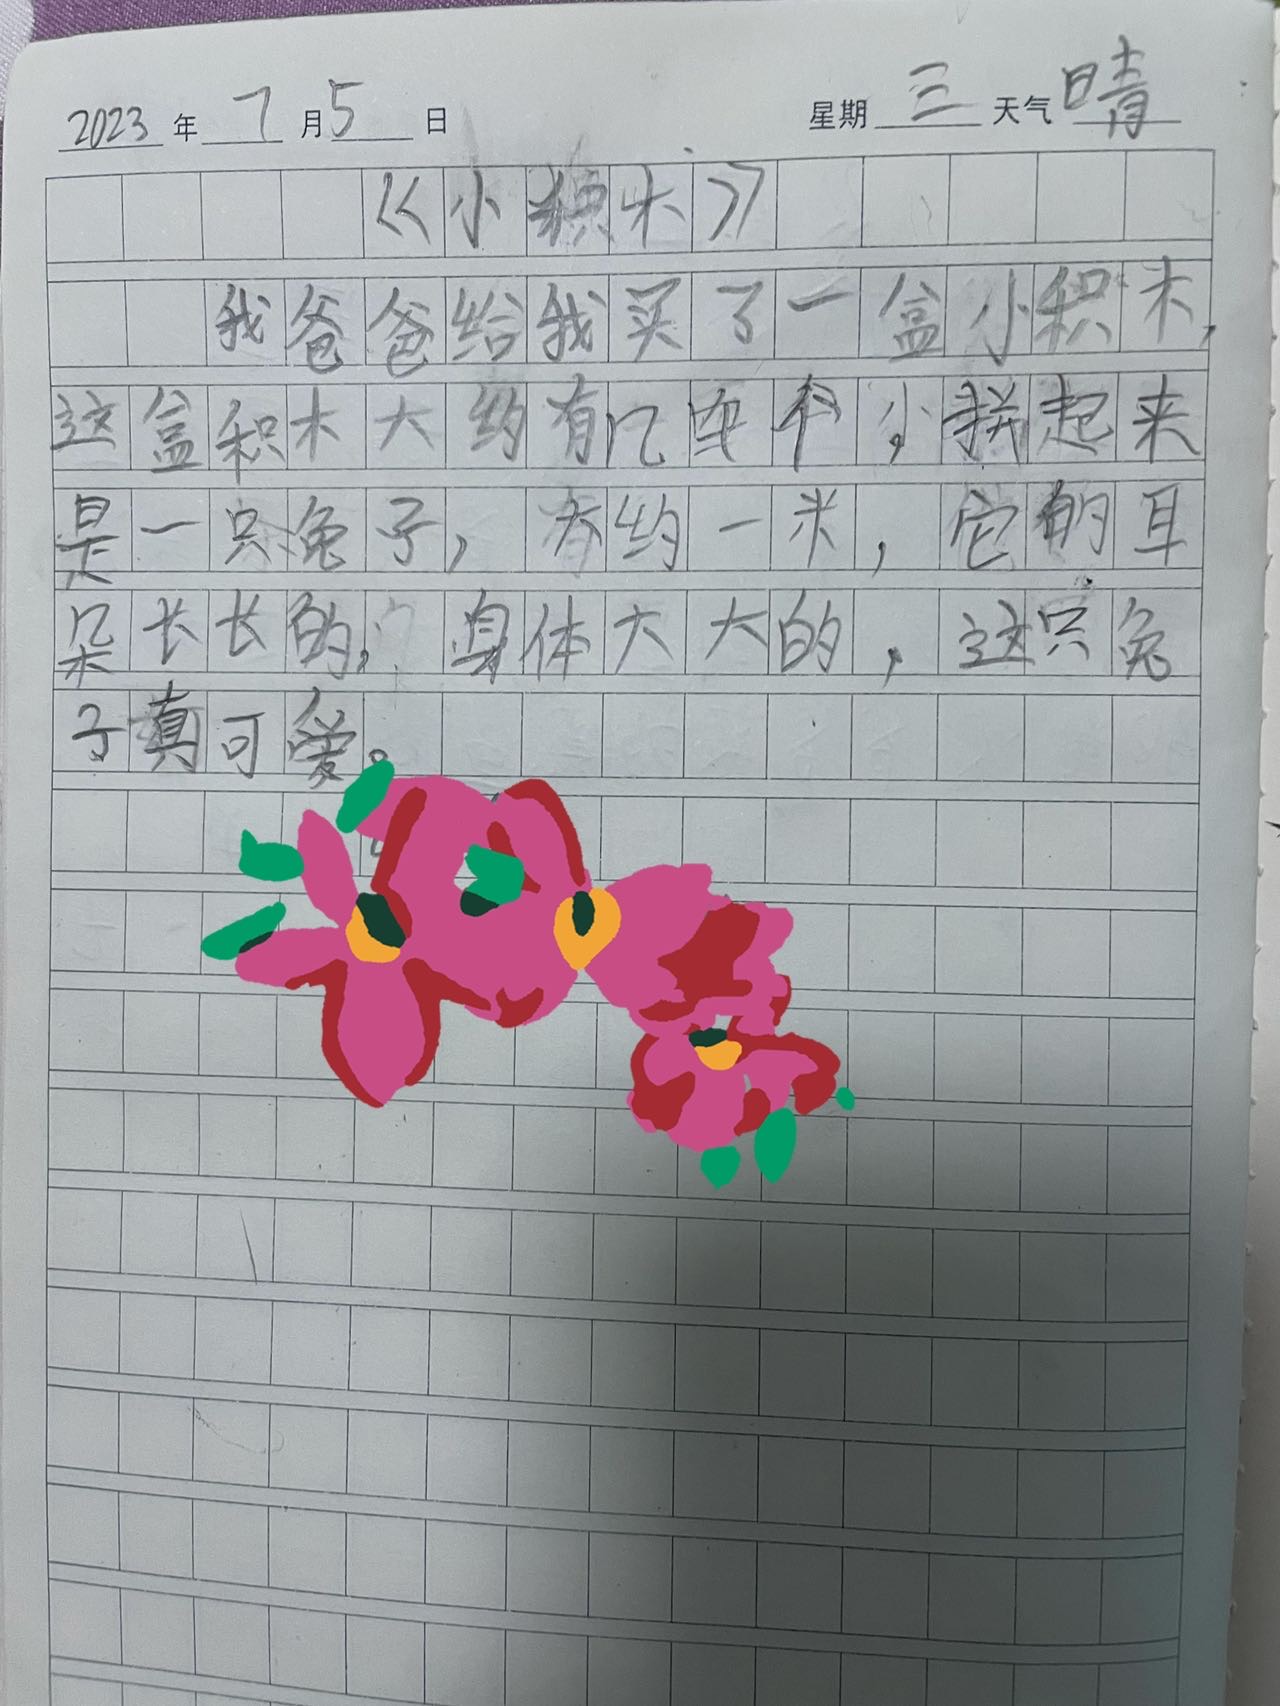 2023年7月5日 星期三 天气晴
《小积木》
我爸爸给我买了一盒小积木,
这盒积木大约有几 个,小拼起来
是一只兔子,有约一米,它的耳
朵长长的,身体大大的,这只兔
子真可爱。